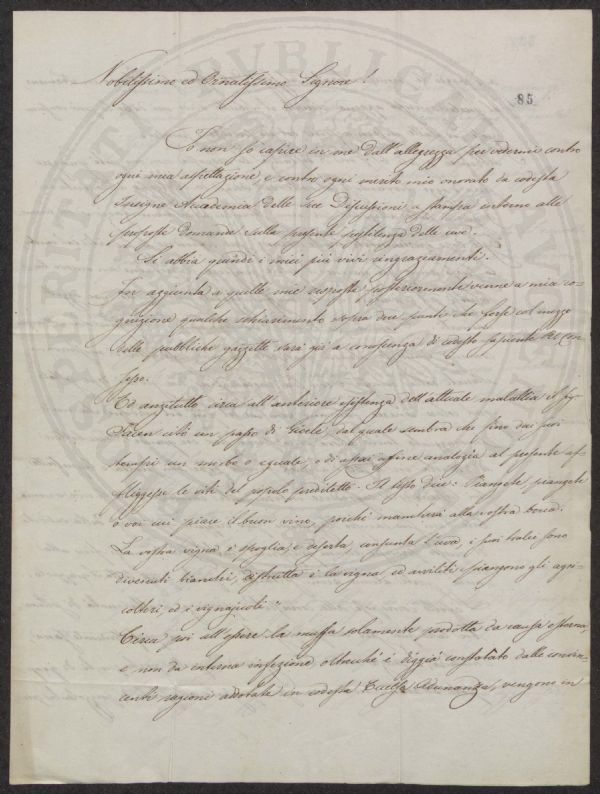 Nobilissimo ed Ornatissimo Signore!
85
Io non so capire in me dall'allegrezza per vedermi contro
ogni mia aspettazione, e contro ogni merito mio onorato da codesta
Insigne Accademia delle due Discussioni a stampa intorno alle
proposte domande sulla presente pestilenza delle uve.
Si abbia quindi i miei più vivi ringraziamenti.
Per aggiunta a quelle mie risposte posteriormente venne a mia co-
gnizione qualche schiarimento sopra due punti che forse col mezzo
delle pubbliche gazzette sarà già a conoscenza di codesto sapiente Con-
sesso.
Ed anzitutto circa all'anteriore esistenza dell'attuale malattia il
citò un passo di Gioele, dal quale sembra che fino dai suoi
tempi un morbo o eguale, o di assai affine analogia al presente af-
fliggesse le viti del popolo prediletto. Il testo dice: Piangete piangete
o voi cui piace il buon vino, poichè mancherà alla vostra bocca.
La vostra vigna è spoglia, e deserta, consunta l'uva, i suoi tralci sono
divenuti bianchi, distrutta è la vigna ed avviliti piangono gli agri-
coltori, ed i vignajuoli"
Circa poi all'essere la muffa solamente prodotta da causa esterna,
e non da interna infezione oltrecchè è diggià constatato dalle convin-
centi ragioni adottate in codesta Adunanza, vengono in